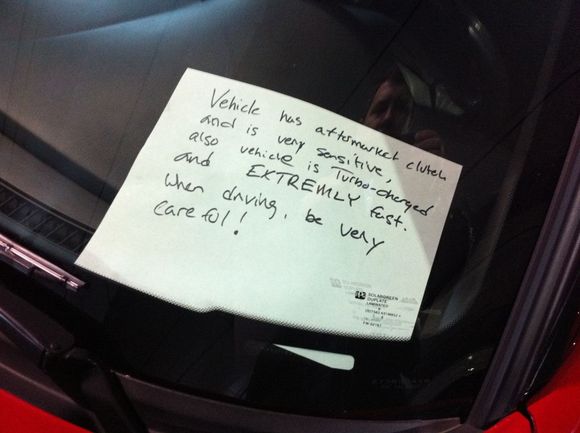 Vehicle has aftermarket clutch
and is very sensitive,
also vehicle is Turbo-charged
and EXTREMLY fast.
When driving, be very
careful!
PPG SOLARGREEN
DUPLATE
LAMINATED